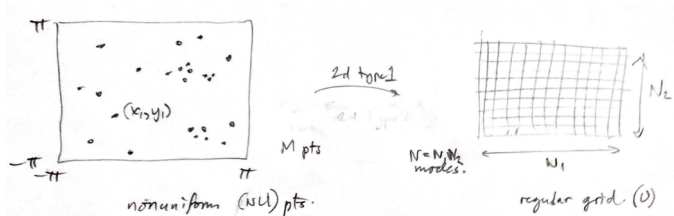 π
-π
-π
π
(x₁,y₁)
M pts
nonuniform (NU) pts.
2d type 1
N=N₁N₂
modes.
N₁
N₂
regular grid. (U)